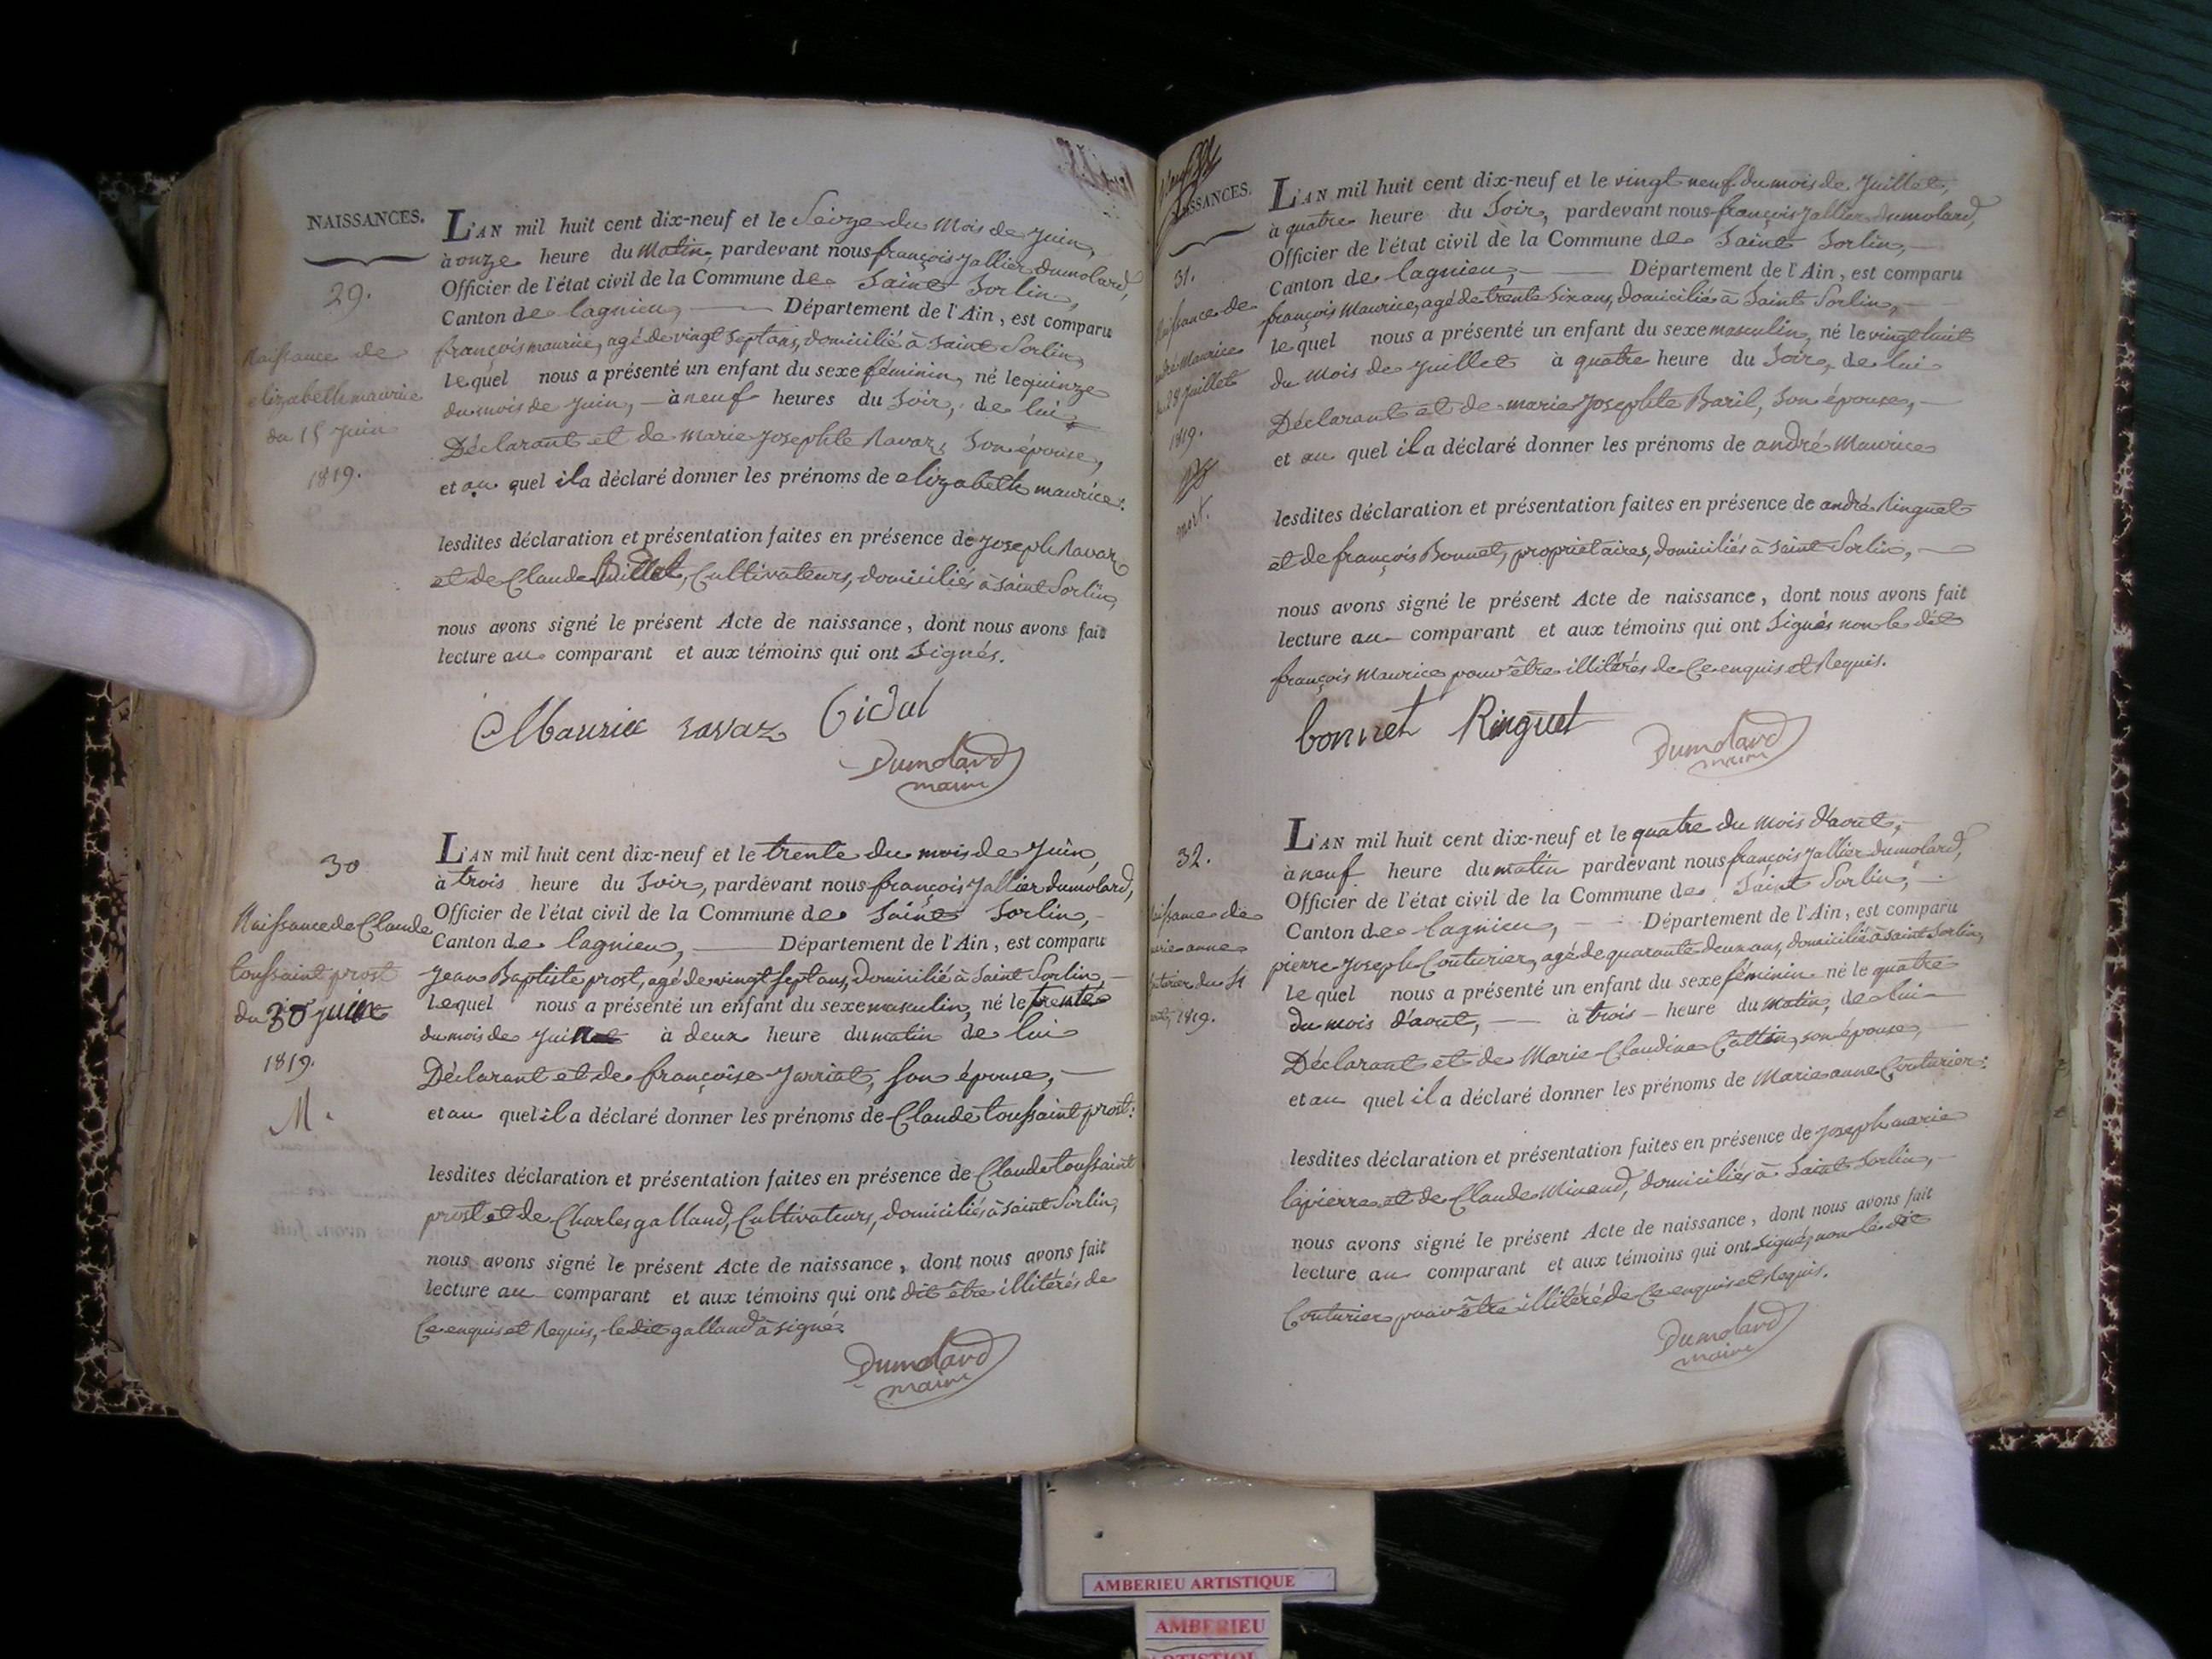 NAISSANCES.
29.
Naissance de
elizabeth maurice
du 15 Juin
1819.
L'AN mil huit cent dix-neuf et le Seize du Mois de Juin,
à onze heure du Matin, pardevant nous françois Jallier Dumolard,
Officier de l'état civil de la Commune de Saint Sorlin,
Canton de lagnieu, Département de l'Ain, est comparu
françois maurice, agé de vingt Sept ans, domicilié à Saint Sorlin,
lequel nous a présenté un enfant du sexe féminin, né le quinze
du mois de Juin, — à neuf heures du Soir, de lui
Déclarant et de Marie Josephte Ravaz, Son épouse,
et au quel il a déclaré donner les prénoms de elizabeth maurice:
lesdites déclaration et présentation faites en présence de Joseph Ravaz
et de Claude, Cultivateurs, domiciliés à Saint Sorlin,
nous avons signé le présent Acte de naissance, dont nous avons fait
lecture au comparant et aux témoins qui ont Signés.
Maurice ravaz
Dumolard
maire
30
Naissance de Claude
toussaint prost
du 30 juin
1819.
M.
L'AN mil huit cent dix-neuf et le trente du mois de Juin,
à trois heure du Soir, pardevant nous françois Jallier dumolard,
Officier de l'état civil de la Commune de Saint Sorlin,
Canton de lagnieu, Département de l'Ain, est comparu
Jean Baptiste prost, agé de vingt Sept ans, Domicilié à Saint Sorlin,
Lequel nous a présenté un enfant du sexe masculin, né le trente
du mois de à deux heure du matin de lui
Déclarant et de françoise Jarriat, son épouse,
et au quel il a déclaré donner les prénoms de Claude toussaint prost:
lesdites déclaration et présentation faites en présence de Claude toussaint
prost et de Charles galland, Cultivateurs, domiciliés à Saint Sorlin,
nous avons signé le présent Acte de naissance, dont nous avons fait
lecture au comparant et aux témoins qui ont dit être illitérés de
Ce enquis et Requis, le dit galland à signé.
Dumolard
maire
31.
Maurice
28 Juillet
1819.
mort.
L'AN mil huit cent dix-neuf et le vingt neuf du mois de Juillet,
à quatre heure du Soir, pardevant nous françois Jallier dumolard,
Officier de l'état civil de la Commune de Saint Sorlin,
Canton de lagnieu, Département de l'Ain, est comparu
françois Maurice, agé de trente Six ans, domicilié à Saint Sorlin,
Le quel nous a présenté un enfant du sexe masculin, né le vingt huit
du Mois de Juillet à quatre heure du Soir, de lui
Déclarant et de marie Josephte Baril, Son épouse,
et au quel il a déclaré donner les prénoms de andré Maurice
lesdites déclaration et présentation faites en présence de andré Ringuet
et de françois Bonnet, propriétaires, domiciliés à Saint Sorlin,
nous avons signé le présent Acte de naissance, dont nous avons fait
lecture au comparant et aux témoins qui ont Signés non le dit
françois Maurice pour être illitérés de Ce enquis et Requis.
bonnet Ringuet
Dumolard
maire
32.
1819.
L'AN mil huit cent dix-neuf et le quatre du mois d'aout,
à neuf heure du matin pardevant nous françois Jallier dumolard,
Officier de l'état civil de la Commune de Saint Sorlin,
Canton de lagnieu, Département de l'Ain, est comparu
pierre Joseph Couturier, agé de quarante deux ans, domicilié à Saint Sorlin,
Le quel nous a présenté un enfant du sexe féminin né le quatre
du mois d'aout, — à trois heure du matin, de lui
Déclarant et de Marie Claudine, son épouse,
et au quel il a déclaré donner les prénoms de Marie anne Couturier:
lesdites déclaration et présentation faites en présence de Joseph marie
lapierre et de Claude, domiciliés à Saint Sorlin,
nous avons signé le présent Acte de naissance, dont nous avons fait
lecture au comparant et aux témoins qui ont signé, non le dit
Couturier pour être illitéré de Ce enquis et Requis.
Dumolard
maire
AMBERIEU ARTISTIQUE
AMBERIEU